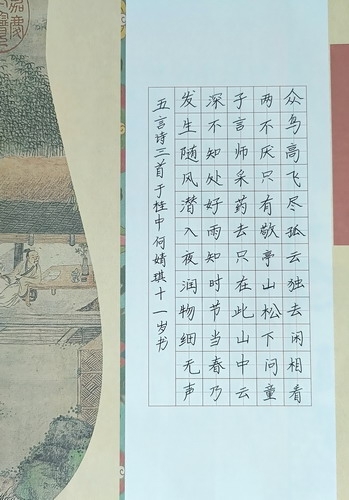 众鸟高飞尽孤云独去闲相看
两不厌只有敬亭山松下问童
子言师采药去只在此山中云
深不知处好雨知时节当春乃
发生随风潜入夜润物细无声
五言诗三首于桂中何婧琪十一岁书